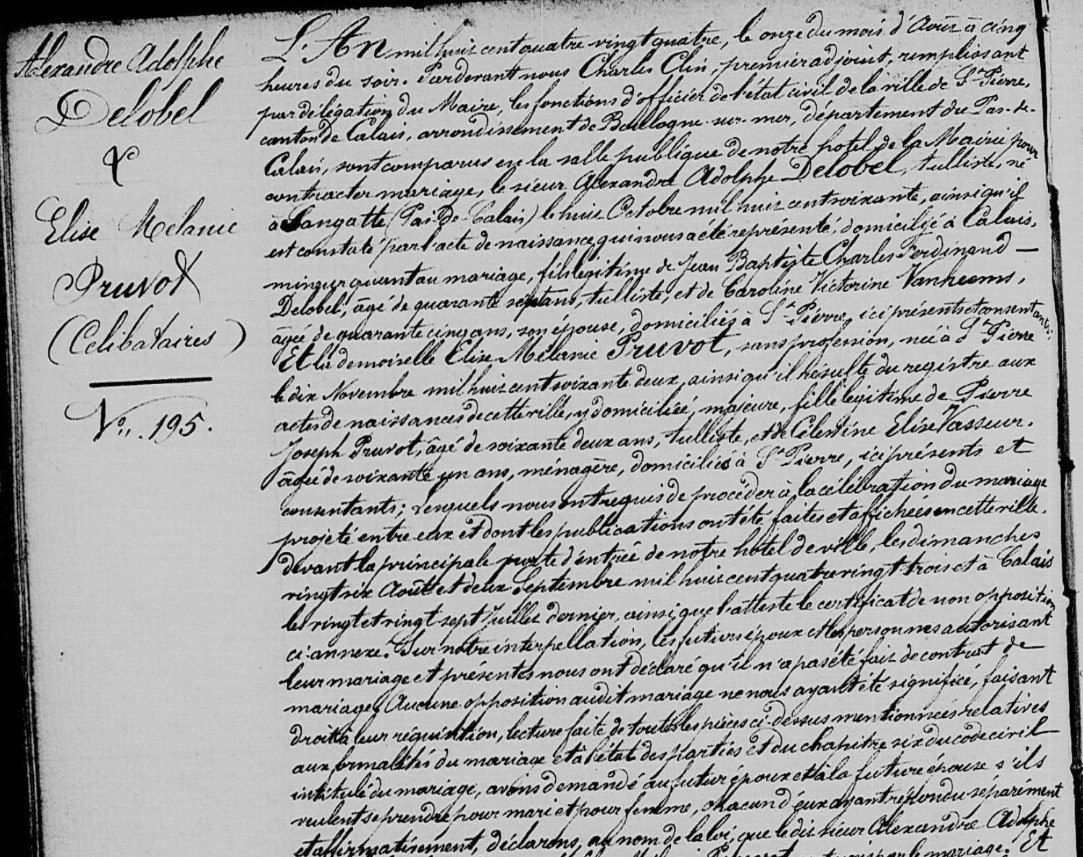 Alexandre Adolphe
Delobel
&
Elise Mélanie
Pruvot
(Célibataires)
N°. 195.
L'An mil huit cent quatre vingt quatre, le onze du mois d'Août à cinq
heures du soir. Pardevant nous Charles Clin, premier adjoint, remplissant
par délégation du Maire, les fonctions d'officier de l'état civil de la ville de St Pierre,
canton de Calais, arrondissement de Boulogne-sur-mer, département du Pas-de-
Calais, sont comparus en la salle publique de notre hotel de la Mairie pour
contracter mariage, le sieur Alexandre Adolphe Delobel, tulliste, né
à Sangatte (Pas-de-Calais) le huit Octobre mil huit cent soixante, ainsi qu'il
est constaté par l'acte de naissance qui nous a été représenté, domicilié à Calais,
mineur quant au mariage, fils légitime de Jean Baptiste Charles Ferdinand —
Delobel, âgé de quarante sept ans, tulliste, et de Caroline Victorine Vanheems,
âgée de quarante cinq ans, son épouse, domiciliés à St Pierre, ici présents et consentants;
Et la demoiselle Elise Mélanie Pruvot, sans profession, née à St Pierre
le dix Novembre mil huit cent soixante deux, ainsi qu'il résulte du registre aux
actes de naissances de cette ville, y domiciliée, majeure, fille légitime de Pierre
Joseph Pruvot, âgé de soixante deux ans, tulliste, et de Célestine Elise Vasseur,
âgée de soixante un ans, ménagère, domiciliés à St Pierre, ici présents et
consentants; Lesquels nous ont requis de procéder à la célébration du mariage
projeté entre eux et dont les publications ont été faites et affichées en cette ville,
devant la principale porte d'entrée de notre hôtel de ville, les dimanches
vingt six Août et deux Septembre mil huit cent quatre vingt trois et à Calais
les vingt et vingt sept Juillet dernier, ainsi que l'atteste le certificat de non opposition
ci-annexé. Sur notre interpellation, les futurs époux et les personnes autorisant
leur mariage et présentes nous ont déclaré qu'il n'a pas été fait de contrat de
mariage. Aucune opposition audit mariage ne nous ayant été signifiée, faisant
droit à leur réquisition, lecture faite de toutes les pièces ci-dessus mentionnées relatives
aux formalités du mariage et à l'état des parties et du chapitre six du code civil
intitulé du mariage, avons demandé au futur époux et à la future épouse s'ils
veulent se prendre pour mari et pour femme, chacun d'eux ayant répondu séparément
et affirmativement, déclarons, au nom de la loi, que le dit sieur Alexandre Adolphe
Pruvot par le mariage. Et